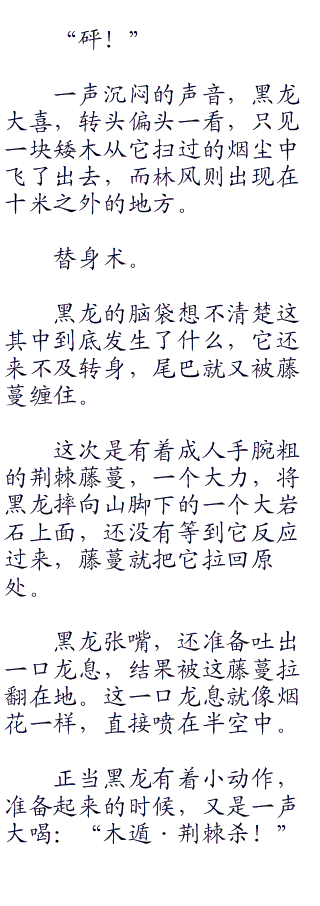 “砰！”
一声沉闷的声音，黑龙
大喜，转头偏头一看，只见
一块矮木从它扫过的烟尘中
飞了出去，而林风则出现在
十米之外的地方。
替身术。
黑龙的脑袋想不清楚这
其中到底发生了什么，它还
来不及转身，尾巴就又被藤
蔓缠住。
这次是有着成人手腕粗
的荆棘藤蔓，一个大力，将
黑龙摔向山脚下的一个大岩
石上面，还没有等到它反应
过来，藤蔓就把它拉回原
处。
黑龙张嘴，还准备吐出
一口龙息，结果被这藤蔓拉
翻在地。这一口龙息就像烟
花一样，直接喷在半空中。
正当黑龙有着小动作，
准备起来的时候，又是一声
大喝：“木遁·荆棘杀！”